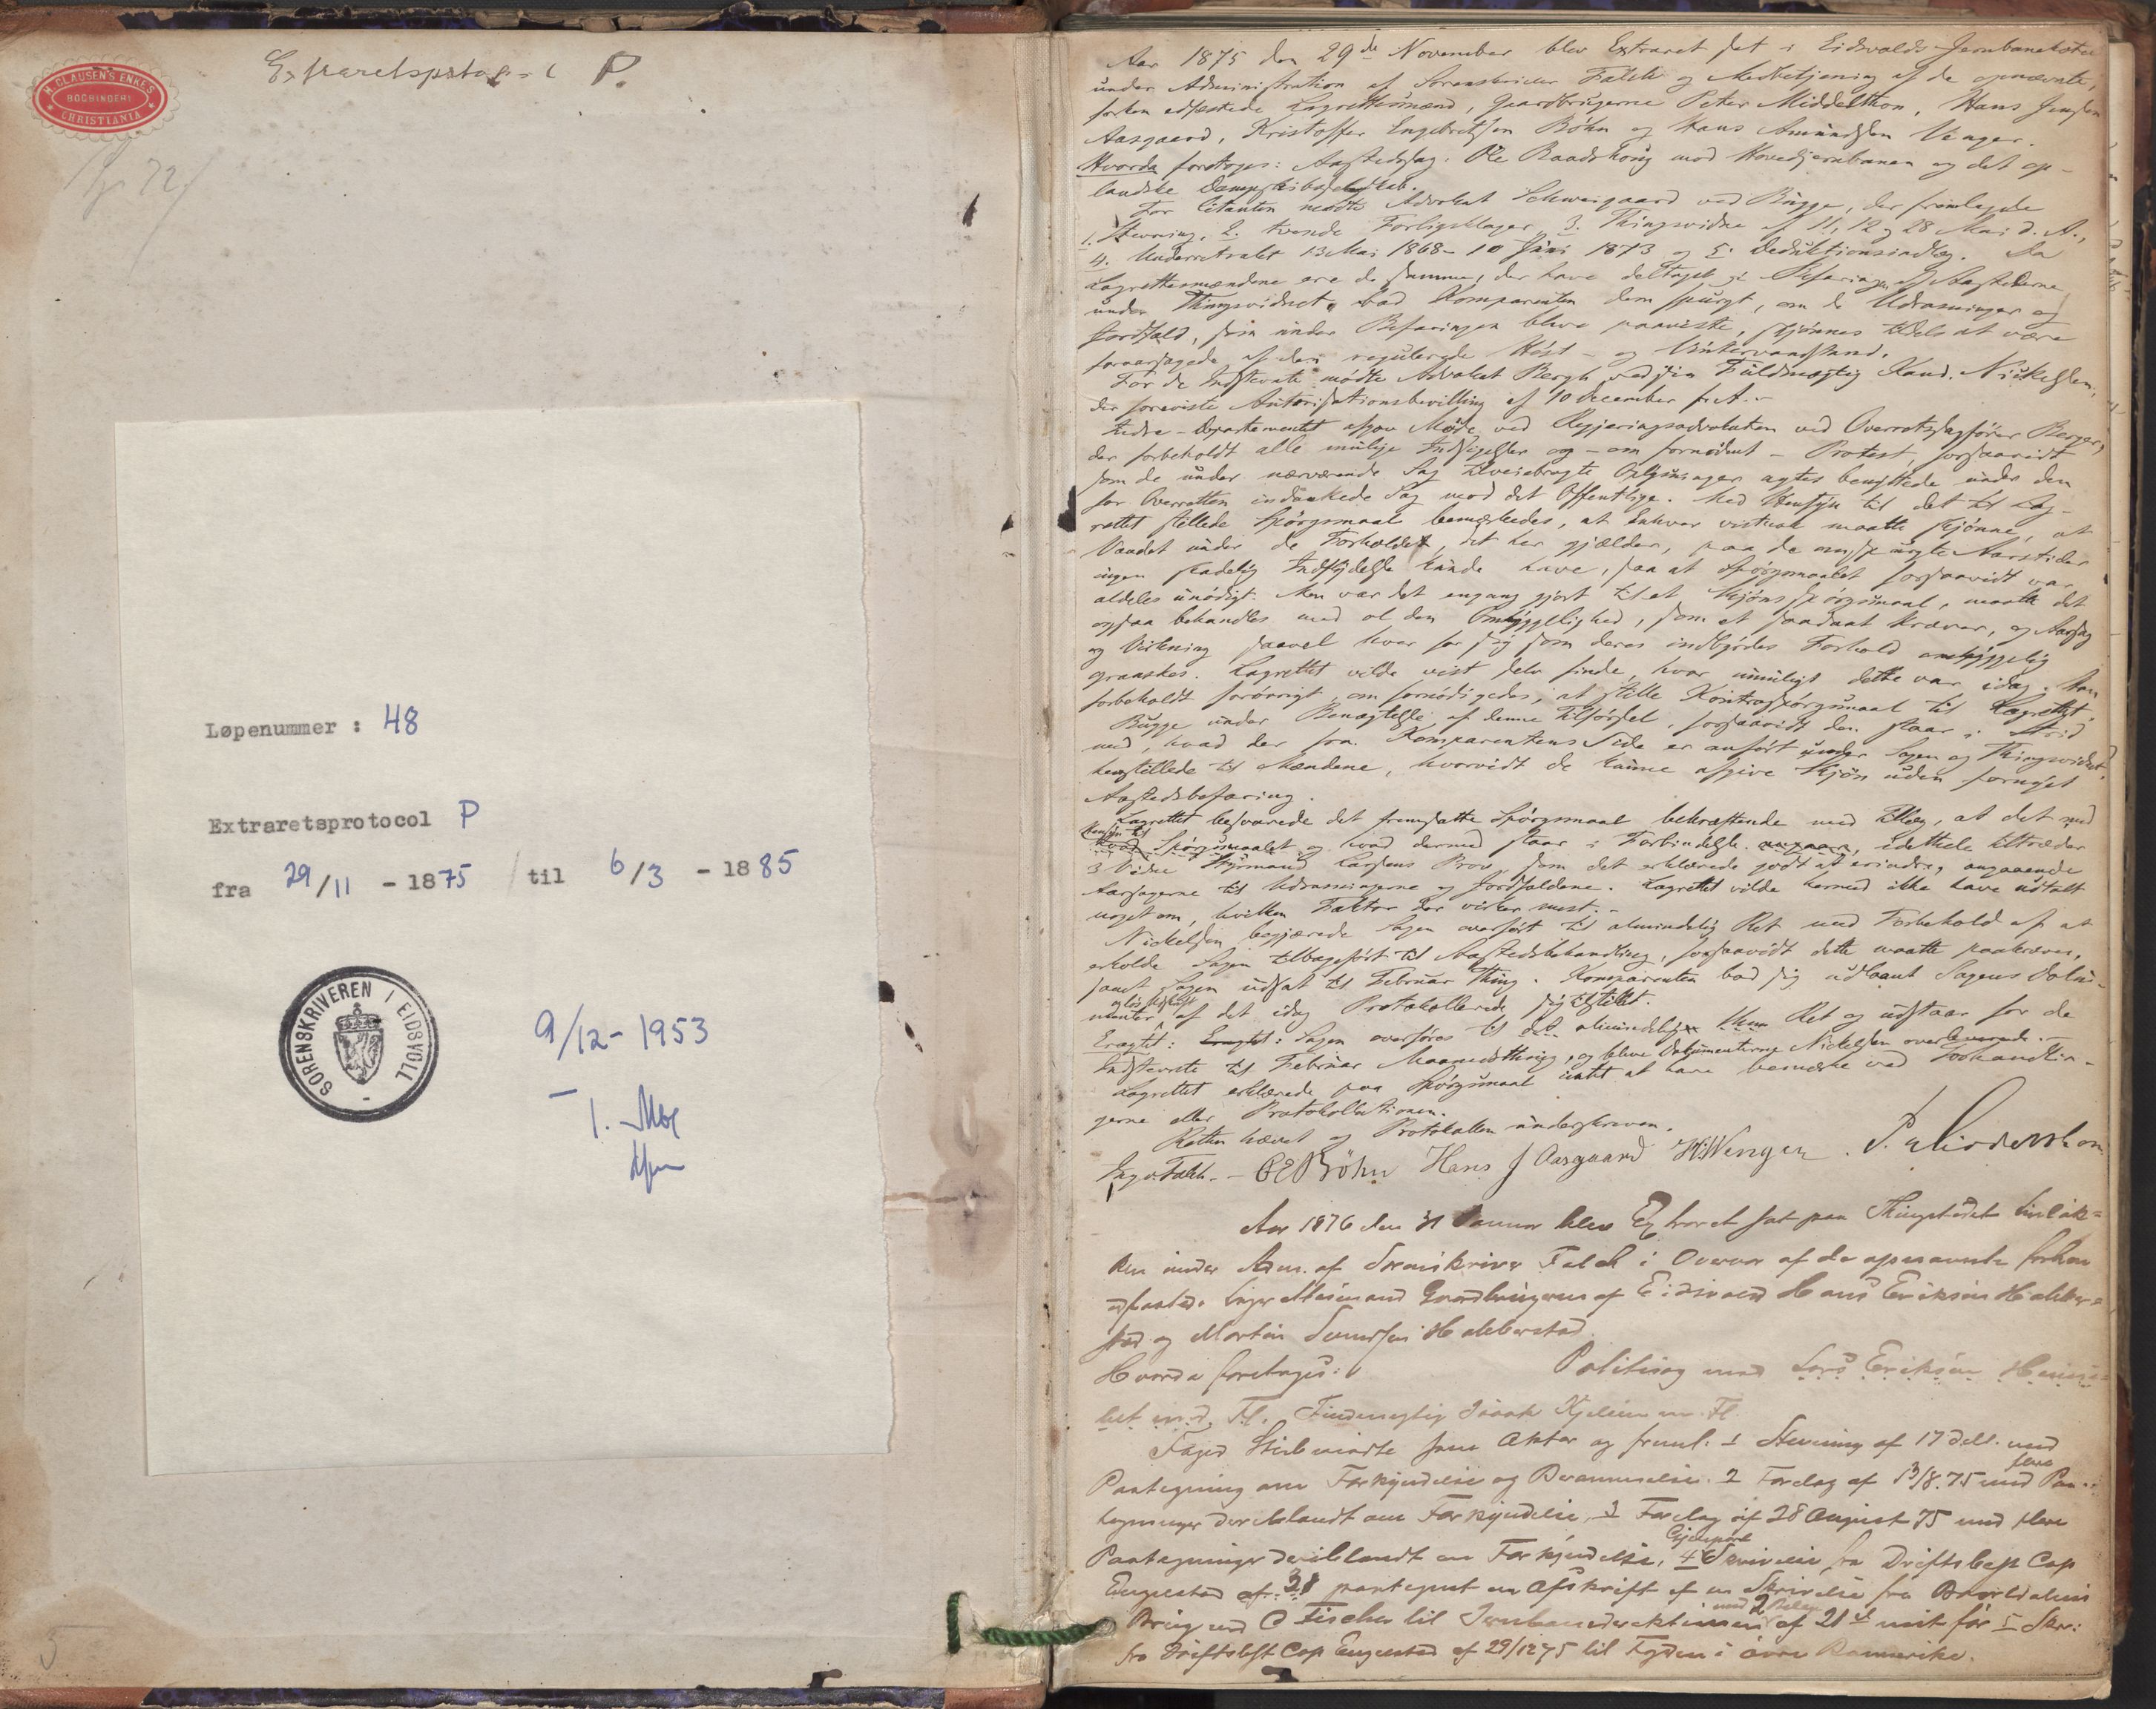 Extraretsprotocol P.
H. CLAUSEN'S ENKES
BOGBINDERI
CHRISTIANIA
Løpenummer : 48
Extraretsprotocol P
fra 29/11 - 1875 / til 6/3 - 1885
SORENSKRIVEREN I EIDSVOLL
9/12 - 1953
5
Aar 1875 den 29de November blev Extraret sat i Eidsvolds Jernbanehotel
under Administration af Sorenskriver Falch og Medbetjening af de opnævnte,
forhen edfæstede Lagrettesmænd, Gaardbrugerne Peter Middelthon, Hans Jensen
Aasgaard, Kristoffer Engebretsen Bøhn og Hans Amundsen Venger.
Hvorda foretoges: Aastedssag. Ole Raadshoug mod Hovedjernbanen og det op-
landske Dampskibsselskab.
For Citanten mødte Advokat Schweigaard ved Bugge, der fremlagde
1. Stevning, 2. tvende Forligsklager, 3. Thingsvidne af 11, 12 og 28 Mai d. A.,
4. Underretsakt 13 Mai 1868 - 10 Juni 1873 og 5. Deduktionsindlæg. Da
Lagrettesmændene ere de samme, der have deltaget i Befaringen af Aastederne
under Thingsvidnet, bad Komparenten dem spurgt, om de Udrasninger og
Jordfald, som under Befaringen bleve paaviste, skjønnes tildels at være
foraarsagede af den regulerede Høst- og Vintervandstand.
For de Indstevnte mødte Advokat Bergh ved sin Fuldmægtig Kand. Nickelsen,
der foreviste Autorisationsbevilling af 10 December f. A.
Indre-Departementet afgav Møde ved Regjeringsadvokaten ved Overretssagfører Berger,
der forbeholdt alle mulige Indsigelser og - om fornødent - Protest, forsaavidt
som de under nærværende Sag tilveiebragte Oplysninger agtes benyttede under den
for Overretten indankede Sag mod det Offentlige. Med Hensyn til det til Lag-
rettet stillede Spørgsmaal bemærkedes, at Enhver vistnok maatte skjønne, at
Vandet under de Forholde, det her gjælder, paa de omspurgte Aarstider
ingen skadelig Indflydelse kunde have, saa at Spørgsmaalet forsaavidt var
aldeles unødigt. Men var det engang gjort til et Skjønsspørgsmaal, maatte det
ogsaa behandles med al den Omhyggelighed, som et saadant kræver, og Aarsag
og Virkning saavel hver for sig som deres indbyrdes Forhold omhyggelig
granskes. Lagrettet vilde vist selv finde, hvor umuligt dette var idag. Han
forbeholdt forøvrigt, om fornødigedes, at stille Kontraspørgsmaal til Lagrettet.
Bugge under Benægtelse af denne Tilførsel, forsaavidt den staar i Strid
med, hvad der fra Komparentens Side er anført under Sagen og Thingsvidnet,
henstillede til Mændene, hvorvidt de kunne afgive Skjøn uden fornyet
Aastedsbefaring.
Lagrettet besvarede det fremsatte Spørgsmaal bekræftende med Tillæg, at det med
Hensyn til
Spørgsmaalet og hvad dermed staar i Forbindelse, idethele tiltræder
3 Vidne Styrmand Larsens Prov, som det erklærede godt at erindre, angaaende
Aarsagerne til Udrasningerne og Jordfaldene. Lagrettet vilde hermed ikke have udtalt
noget om, hvilken Faktor der virker mest.
Nickelsen begjærede Sagen overført til almindelig Ret med Forbehold af at
erholde Sagen tilbageført til Aastedsbehandling, forsaavidt dette maatte paakræves,
samt Sagen udsat til Februar Thing. Komparenten bad sig udlaant Sagens Doku-
menter og Udskrift af det idag Protokollerede sig tilstillet.
Eragtet: Sagen overføres til almindelig Ret og udstaar for de
Indstevnte til Februar Maanedsthing, og bleve Dokumenterne Nickelsen overleverede.
Lagrettet erklærede paa Spørgsmaal intet at have bemærke ved Forhandlin-
gerne eller Protokollationen.
Retten hævet og Protokollen underskreven.
Ingv. Falch. - C E Bøhn Hans J Aasgaard H. Wenger. P. Middelthon
Aar 1876 den 31 Januar blev Extraret sat paa Thingstedet
under Adm. af Sorenskriver Falch i Overvær af de opnævnte forhen
edfæstede Lagrettesmænd Gaardbrugerne af Eidsvold Hans Eriksen Hakker-
stad og Morten Hakkerstad
Hvorda foretoges: Politisag mod Lars Eriksen
Foged mødte som Aktor og freml. 1 Stevning af 17 med
Paategning om Forkyndelse og Berammelse. 2 Forelæg af 13/8.75 med flere Paa-
tegninger deriblandt om Forkyndelse, 3 Forelæg af 28 August 75 med flere
Paategninger deriblandt om Forkyndelse, 4 Gjenpart Skrivelse fra Driftsbest Cap
Engelstad af paategnet en Afskrift af en Skrivelse fra
Brug ved C Fischer til Jernbanedirektionen med 2 Bilag af 21de 5 Skr.
fra Driftsbst Cap Engelstad af 29/12 75 til Fogden i øvre Romerike.